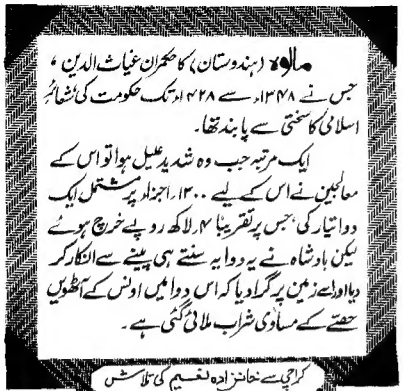 مالوہ (ہندوستان) کا حکمران غیاث الدین،
جس نے ۱۳۴۸ء سے ۱۴۲۸ء تک حکومت کی شعائرِ
اسلامی کا سختی سے پابند تھا۔
ایک مرتبہ جب وہ شدید علیل ہوا تو اس کے
معالجین نے اس کے لیے ۱۳۰۰ اجزاء پر مشتمل ایک
دوا تیار کی، جس پر تقریباً ۴ لاکھ روپے خرچ ہوئے
لیکن بادشاہ نے یہ دوا یہ سنتے ہی پینے سے انکار کر
دیا اور اسے زمین پر گرا دیا کہ اس دوا میں اونس کے آٹھویں
حصے کے مساوی شراب ملائی گئی ہے۔
کراچی سے خانزادہ نعیم کی تلاش